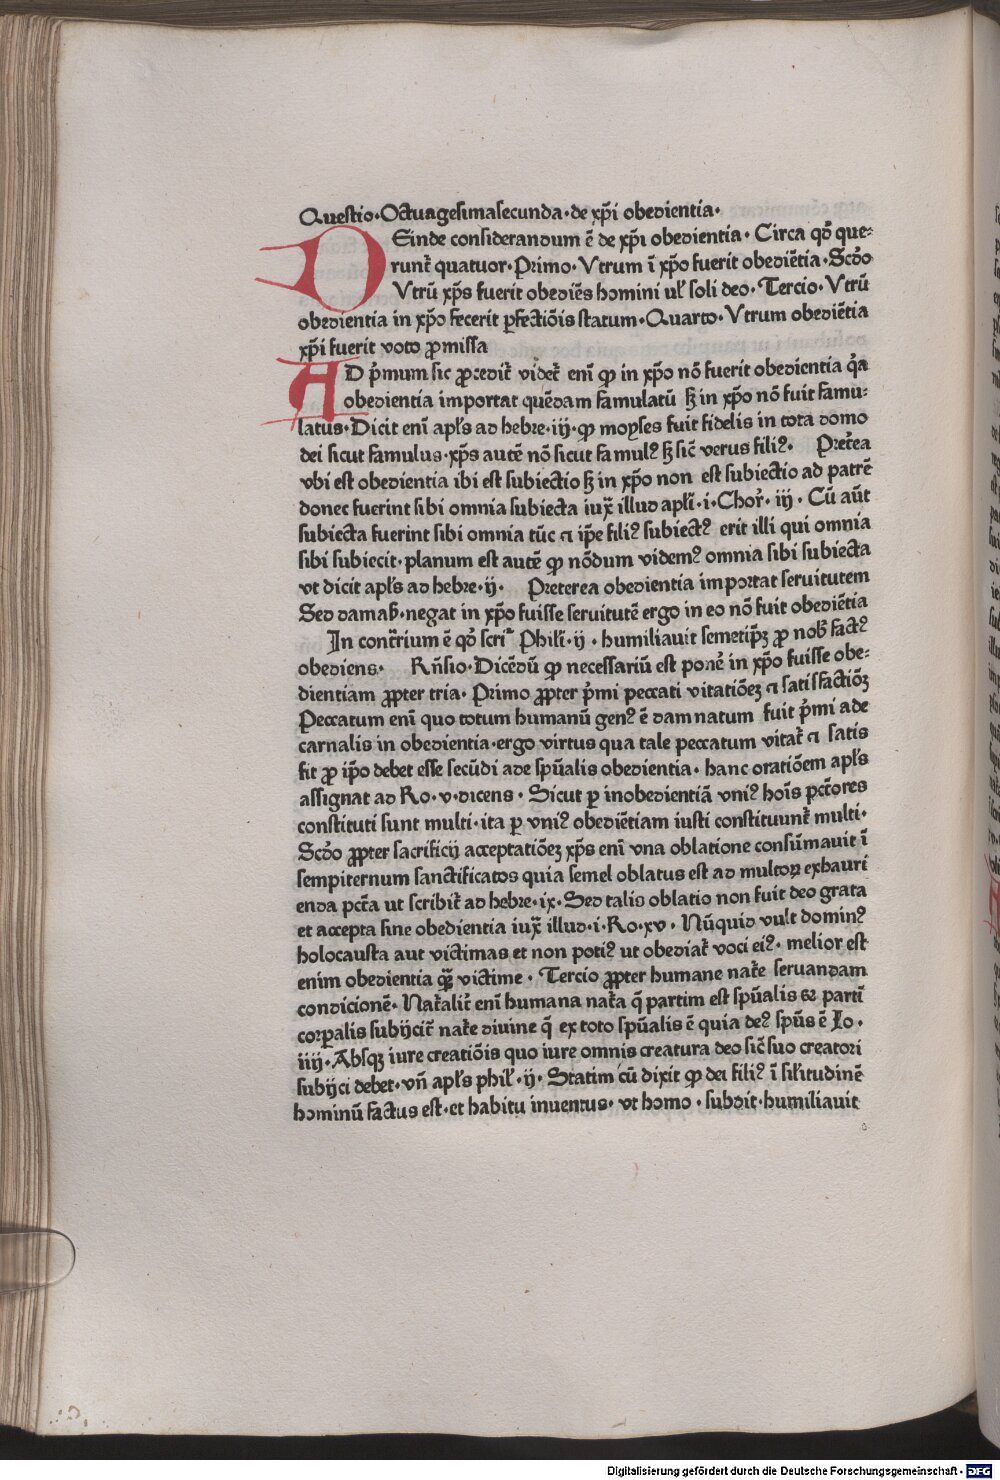 Questio·Octuagesimasecunda·de xp̄i obedientia·
DEinde considerandum ē de xp̄i obedientia· Circa qd̄ que⸗
runt᷑ quatuor·Primo·Vtrum ī xp̄o fuerit obediētia·Scd̄o
Vtrū xp̄s fuerit obediēs homini ul̕ soli deo· Tercio·Vtrū
obedientia in xp̄o fecerit ꝑfectiōis statum·Quarto·Vtrum obediētia
xp̄i fuerit voto ꝓmissa
AD p̄mum sic ꝓcedit᷑ videt᷑ eni̅ ꝙ in xp̄o nō fuerit obedientia q̇a
obedientia importat quēdam famulatū sꝫ in xp̄o nō fuit famu⸗
latus·Dicit eni̅ apl̄s ad hebre·iij·ꝙ moyses fuit fidelis in tota domo
dei sicut famulus·xp̄s autē nō sicut famulꝰ sꝫ sic̄ verus filiꝰ· Pret᷑ea
vbi est obedientia ibi est subiectio sꝫ in xp̄o non est subiectio ad patrē
donec fuerint sibi omnia subiecta iux̄ illud apl̄i·i·Chor᷑·iij· Cū aūt
subiecta fuerint sibi omnia tūc ⁊ ip̄e filiꝰ subiectꝰ erit illi qui omnia
sibi subiecit·planum est autē ꝙ nōdum videmꝰ omnia sibi subiecta
vt dicit apl̄s ad hebre·ij· Preterea obedientia importat seruitutem
Sed damab̄·negat in xp̄o fuisse seruitutē ergo in eo nō fuit obediētia
In cont᷑rium ē qd̄ scri᷑ Phili̅·ij·humiliauit semetip̄ꝫ ꝓ nob᷑ factꝰ
obediens· Rn̄sio·Dicēdū ꝙ necessariū est pone᷑ in xp̄o fuisse obe⸗
dientiam ꝓpter tria·Primo ꝓpter p̄mi peccati vitatiōeꝫ ⁊ satisfactiōꝫ
Peccatum eni̅ quo totum humanū genꝰ ē damnatum fuit p̄mi ade
carnalis in obedientia·ergo virtus qua tale peccatum vitat᷑ ⁊ satis
fit ꝓ ip̄o debet esse secūdi ade spūalis obedientia·hanc oratiōem apl̄s
assignat ad Ro·v·dicens·Sicut ꝑ inobedientiā vniꝰ hoīs pctōres
constituti sunt multi·ita ꝑ vniꝰ obediētiam iusti constituunt᷑ multi·
Scd̄o ꝓpter sacrificij acceptatiōeꝫ xp̄s eni̅ vna oblatione consūmauit ī
sempiternum sanctificatos quia semel oblatus est ad multoꝝ exhauri
enda pct̄a ut scribit᷑ ad hebre·ix·Sed talis oblatio non fuit deo grata
et accepta sine obedientia iux̄ illud·i·Ro·xv· Nūquid vult dominꝰ
holocausta aut victimas et non potiꝰ ut obediat᷑ voci eiꝰ·melior est
enim obedientia qꝫ̄ victime·Tercio ꝓpter humane nat᷑e seruandam
condicionē·Nat᷑alit᷑ eni̅ humana nat᷑a q̄ partim est spūalis ⁊ parti̅
corꝑalis subijcit᷑ nat᷑e diuine q̄ ex toto spūalis ē quia deꝰ spūs ē Io·
iiij·Absqꝫ iure creatiōis quo iure omnis creatura deo sic̄ suo creatori
subijci debet·vn̄ apl̄s phil᷑·ij·Statim cū dixit ꝙ dei filiꝰ ī sil̕itudinē
hominū factus est·et habitu inuentus·vt homo·subdit·humiliauit
Digitalisierung gefördert durch die Deutsche Forschungsgemeinschaft - DFG